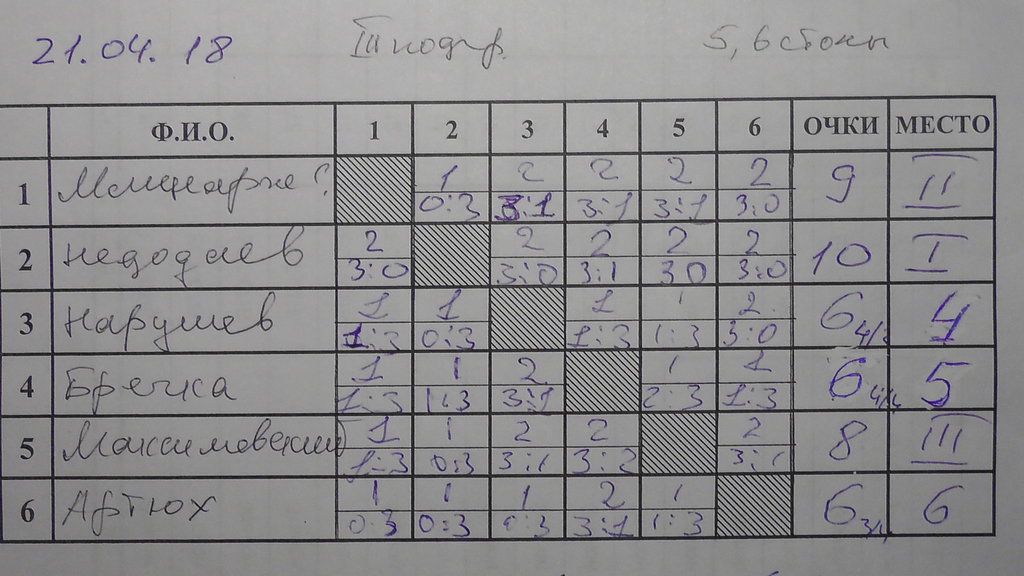 21.04.18 III подгр. 5, 6 столы
Ф.И.О. 1 2 3 4 5 6 ОЧКИ МЕСТО
1 1 2 2 2 2 9 II
0:3 3:1 3:1 3:1 3:0
2 Недодаев 2 2 2 2 2 10 I
3:0 3:0 3:1 3 0 3:0
3 Нарушев 1 1 1 1 2 6 4
1:3 0:3 1:3 1:3 3:0
4 Бречка 1 1 2 1 1 6 5
1:3 1:3 3:1 2:3 1:3
5 Максимовский 1 1 2 2 2 8 III
1:3 0:3 3:1 3:2 3:1
6 Артюх 1 1 1 2 1 6 6
0:3 0:3 0:3 3:1 1:3